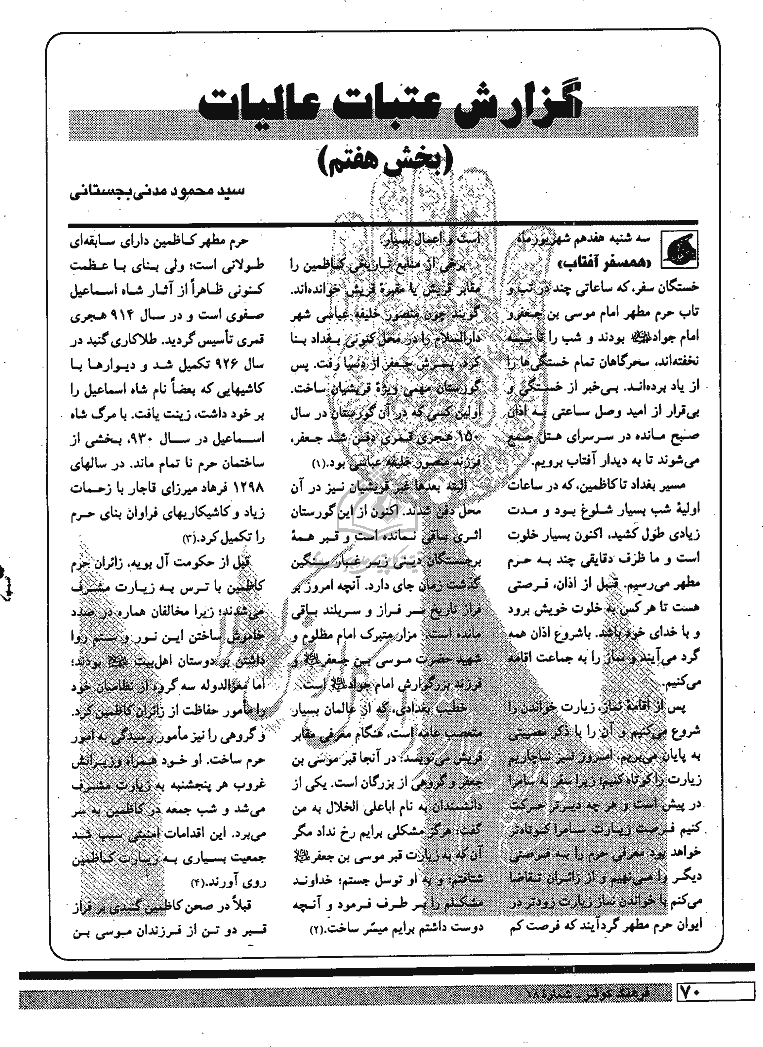 گزارش عتبات عالیات
(بخش هفتم)
سید محمود مدنی‌بجستانی
سه شنبه هفدهم شهریورماه
«همسفر آفتاب»
خستگان سفر، که ساعاتی چند در تب و
تاب حرم مطهر امام موسی بن جعفر و
امام جواد بودند و شب را تا نیمه
نخفته‌اند، سحرگاهان تمام خستگی‌ها را
از یاد برده‌اند. بی‌خبر از خستگی و
بی‌قرار از امید وصل ساعتی به اذان
صبح مانده در سرسرای هتل جمع
می‌شوند تا به دیدار آفتاب برویم.
مسیر بغداد تا کاظمین، که در ساعات
اولیهٔ شب بسیار شلوغ بود و مدت
زیادی طول کشید، اکنون بسیار خلوت
است و ما ظرف دقایقی چند به حرم
مطهر می‌رسیم. قبل از اذان، فرصتی
هست تا هر کس به خلوت خویش برود
و با خدای خود باشد. باشروع اذان همه
گرد می‌آیند و نماز را به جماعت اقامه
می‌کنیم.
پس از اقامهٔ نماز، زیارت خواندن را
شروع می‌کنیم و آن را با ذکر مصیبتی
به پایان می‌بریم. امروز نیز ناچاریم
زیارت را کوتاه کنیم؛ زیرا سفر به سامرا
در پیش است و هر چه دیرتر حرکت
کنیم فرصت زیارت سامرا کوتاه‌تر
خواهد بود. معرفی حرم را به فرصتی
دیگر وا می‌نهیم و از زائران تقاضا
می‌کنم با خواندن نماز زیارت زودتر در
ایوان حرم مطهر گردآیند که فرصت کم
است و اعمال بسیار.
برخی از منابع تاریخی کاظمین را
مقابر قریش یا مقبرهٔ قریش خوانده‌اند.
گویند چون منصور خلیفه عباسی شهر
دارالسلام را در محل کنونی بغداد بنا
کرد، پسرش جعفر از دنیا رفت. پس
گورستان مهمی ویژهٔ قریشیان ساخت.
اولین کسی که در آن گورستان در سال
۱۵۰ هجری قمری دفن شد جعفر،
فرزند منصور خلیفه عباسی بود.(۱)
البته بعدها غیر قریشیان نیز در آن
محل دفن شدند. اکنون از این گورستان
اثری باقی نمانده است و قبر همهٔ
برجستگان دینی زیر غبار سنگین
گذشت زمان جای دارد. آنچه امروز بر
فراز تاریخ سر فراز و سربلند باقی
مانده است، مزار متبرک امام مظلوم و
شهید حضرت موسی بن جعفر و
فرزند بزرگوارش امام جواد است.
خطیب بغدادی، که از عالمان بسیار
متعصب عامه است، هنگام معرفی مقابر
قریش می‌نویسد: در آنجا قبر موسی بن
جعفر و گروهی از بزرگان است. یکی از
دانشمندان به نام اباعلی الخلال به من
گفت: هرگز مشکلی برایم رخ نداد مگر
آن که به زیارت قبر موسی بن جعفر
شتافتم، و به او توسل جستم؛ خداوند
مشکلم را بر طرف فرمود و آنچه
دوست داشتم برایم میسّر ساخت.(۲)
حرم مطهر کاظمین دارای سابقه‌ای
طولانی است؛ ولی بنای با عظمت
کنونی ظاهراً از آثار شاه اسماعیل
صفوی است و در سال ۹۱۴ هجری
قمری تأسیس گردید. طلاکاری گنبد در
سال ۹۲۶ تکمیل شد و دیوارها با
کاشیهایی که بعضاً نام شاه اسماعیل را
بر خود داشت، زینت یافت. با مرگ شاه
اسماعیل در سال ۹۳۰، بخشی از
ساختمان حرم نا تمام ماند. در سالهای
۱۲۹۸ فرهاد میرزای قاجار با زحمات
زیاد و کاشیکاریهای فراوان بنای حرم
را تکمیل کرد.(۳)
قبل از حکومت آل بویه، زائران حرم
کاظمین با ترس به زیارت مشرف
می‌شدند؛ زیرا مخالفان هماره در صدد
خاموش ساختن این نور و ستم روا
داشتن بر دوستان اهل‌بیت بودند؛
اما معزالدوله سه گروه از نظامیان خود
را مأمور حفاظت از زائران کاظمین کرد.
و گروهی را نیز مأمور رسیدگی به امور
حرم ساخت. او خود همراه وزیرانش
غروب هر پنجشنبه به زیارت مشرف
می‌شد و شب جمعه در کاظمین به سر
می‌برد. این اقدامات امنیتی سبب شد
جمعیت بسیاری به زیارت کاظمین
روی آورند.(۴)
قبلاً در صحن کاظمین گنبدی بر فراز
قبر دو تن از فرزندان موسی بن
۷۰
فرهنگ کوثر - شماره ۱۸